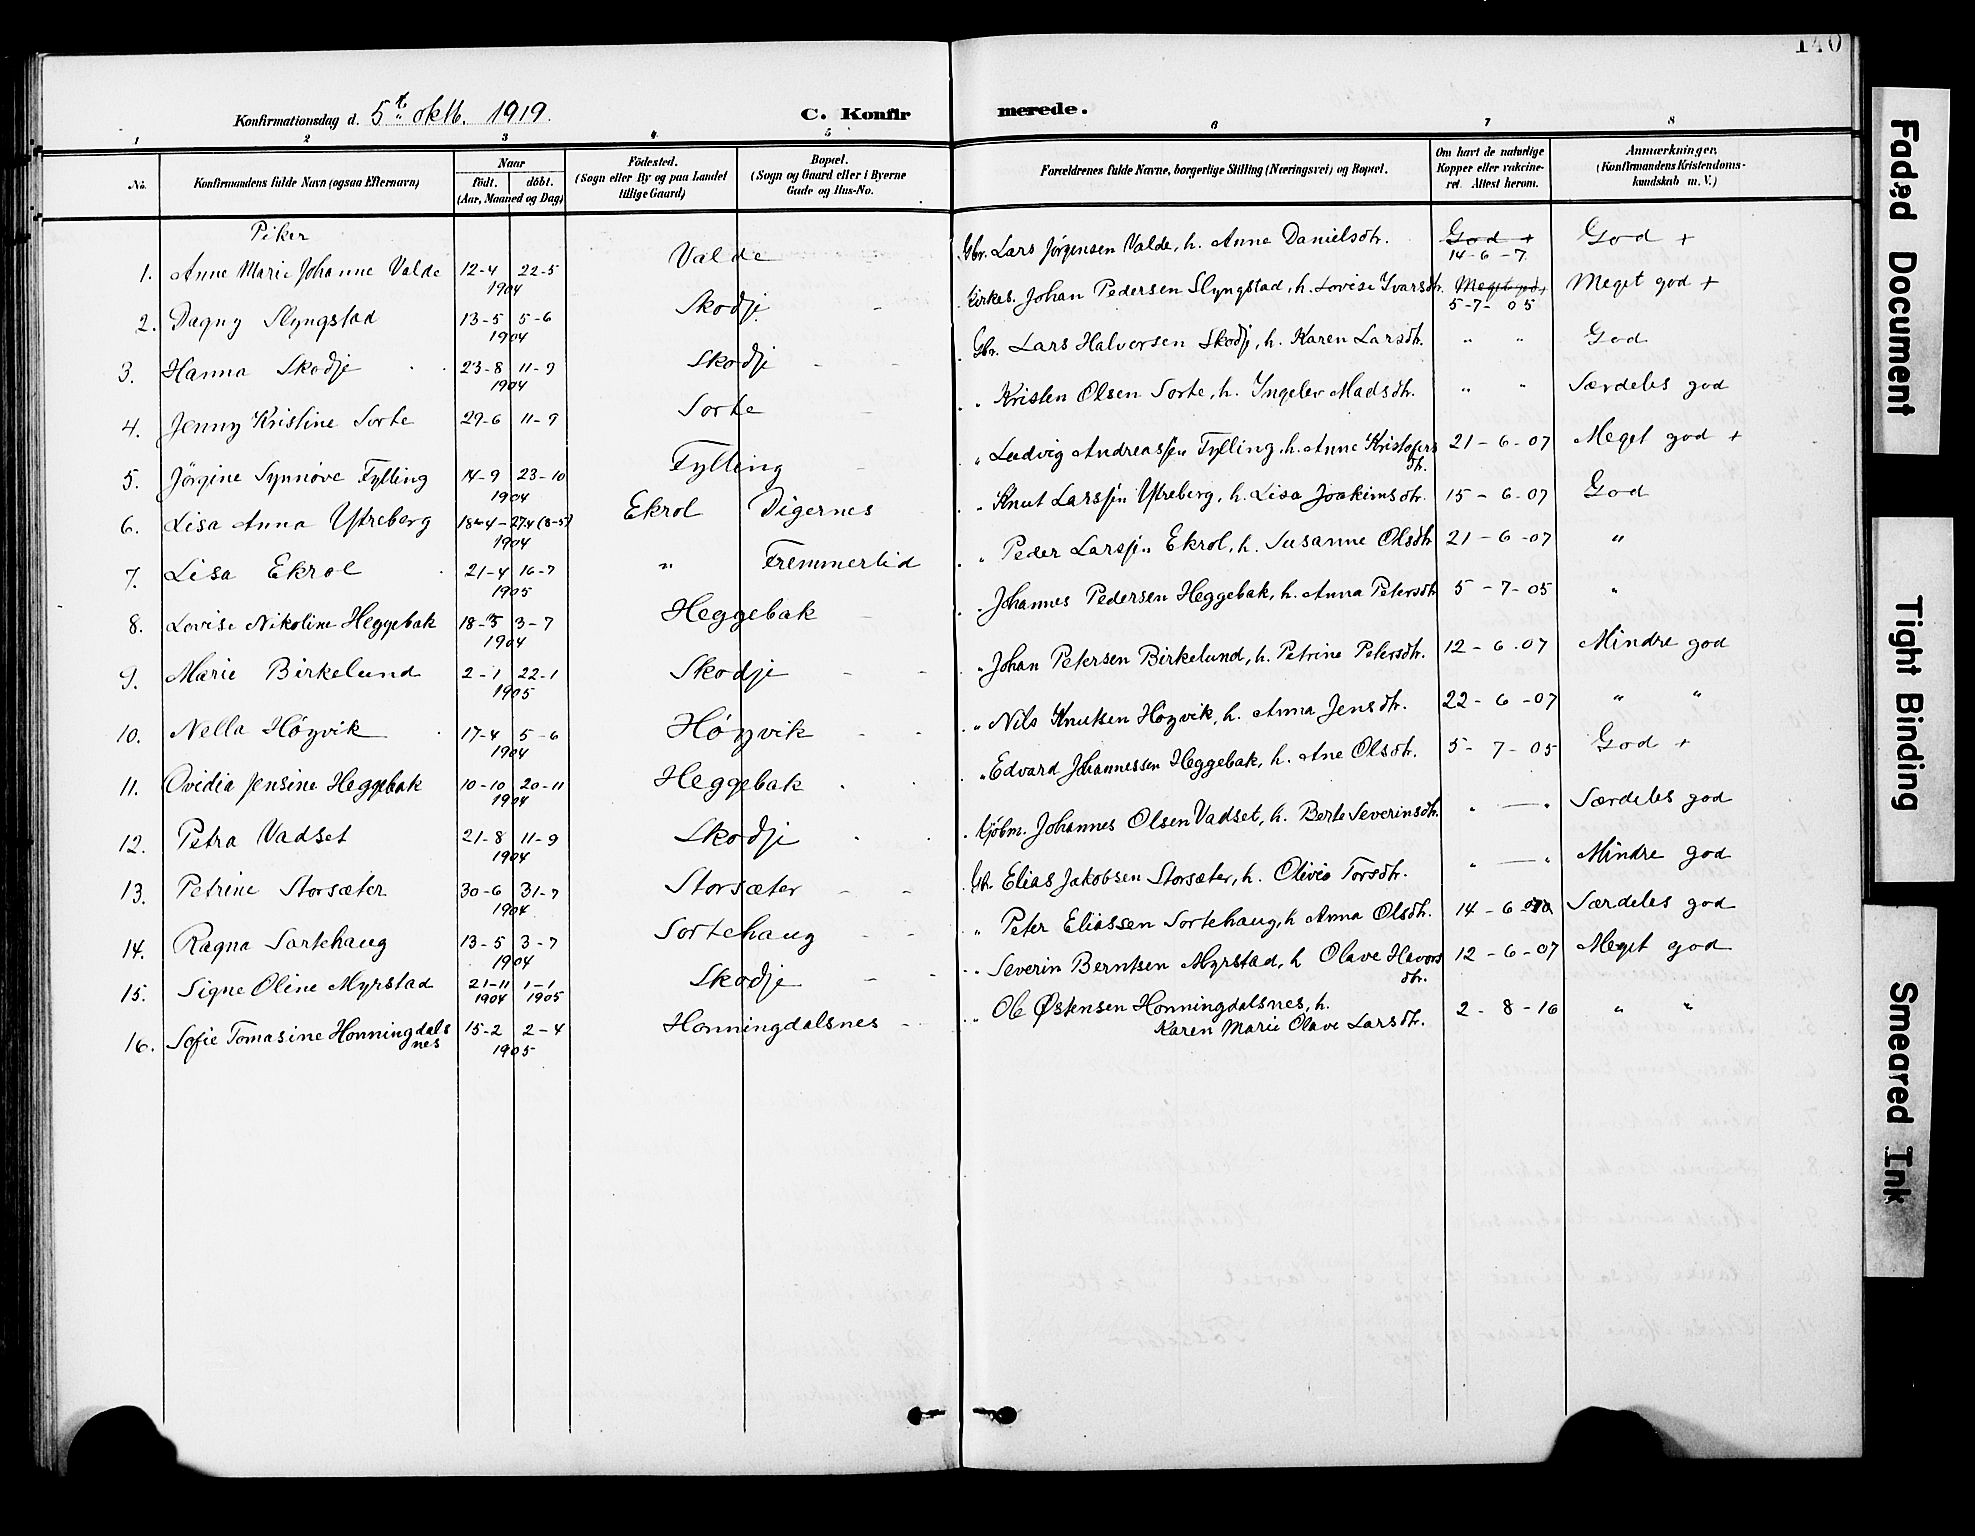 140
Konfirmationsdag d. 5te oktb. 1919. C. Konfirmerede.
1 2 3 4 5 6 7 8
No. Konfirmandens fulde Navn (ogsaa Efternavn) Naar født. døbt. (Aar, Maaned og Dag) Fødested. (Sogn eller By og paa Landet tillige Gaard) Bopæl. (Sogn og Gaard eller i Byerne Gade og Hus-No. Forældrenes fulde Navne, borgerlige Stilling (Næringsvei) og Bopæl. Om havt de naturlige Kopper eller vakcineret. Attest herom. Anmærkninger. (Konfirmandens Kristendomskundskab m. V.)
Piker
1. Anne Marie Johanne Valde 12-4 22-5 1904 Valde Gbr. Lars Jørgensen Valde, h. Anne Danielsdtr. God + 14-6-7 God +
2. Dagny Slyngstad 13-5 5-6 1904 Skodje Kirkes. Johan Pedersen Slyngstad, h. Lovise Ivarsdtr. Meget god + 5-7-05 Meget god +
3. Hanna Skodje 23-8 11-9 1904 Skodje Gbr. Lars Halvorsen Skodje, h. Karen Larsdtr. " " God
4. Jenny Kristine Sorte 29-6 11-9 Sorte " Kristen Olsen Sorte, h. Ingelev Madsdtr. " " Særdeles god
5. Jørgine Synnøve Fylling 14-9 23-10 1904 Fylling " Ludvig Andreassen Fylling, h. Anne Kristofersdtr. 21-6-07 Meget god +
6. Lisa Anna Ytreberg 18-4 - 27-4 (8-5) 1904 Ekrol Digernes " Knut Larssen Ytreberg, h. Lisa Joakimsdtr. 15-6-07 God
7. Lisa Ekrol 21-4 16-7 1905 " Fremmerlid " Peder Larssen Ekrol, h. Susanne Olsdtr. 21-6-07 "
8. Lovise Nikoline Heggebak 18-5 3-7 1904 Heggebak " Johannes Pedersen Heggebak, h. Anna Petersdtr. 5-7-05 "
9. Marie Birkelund 2-1 22-1 1905 Skodje " Johan Petersen Birkelund, h. Petrine Petersdtr. 12-6-07 Mindre god
10. Nella Høgvik 17-4 5-6 1904 Høgvik " Nils Knutsen Høgvik, h. Anna Jensdtr. 22-6-07 " "
11. Ovidia Jensine Heggebak 10-10 20-11 1904 Heggebak " Edvard Johannessen Heggebak, h. Ane Olsdtr. 5-7-05 God +
12. Petra Vadset 21-8 11-9 1904 Skodje Kjøbm. Johannes Olsen Vadset, h. Berte Severinsdtr. " — " Særdeles god
13. Petrine Storsæter 30-6 31-7 1904 Storsæter Gbr. Elias Jakobsen Storsæter, h. Olivia Torsdtr. " — " Mindre god
14. Ragna Sortehaug 13-5 3-7 1904 Sortehaug " Peter Eliassen Sortehaug, h Anna Olsdtr. 14-6- Særdeles god
15. Signe Oline Myrstad 21-11 1904 1-1 1905 Skodje " Severin Berntsen Myrstad, h Olave Havorsdtr. 12-6-07 Meget god
16. Sofie Tomasine Honningdalsnes 15-2 2-4 1905 Honningdalsnes " Ole Østensen Honningdalsnes, h. Karen Marie Olave Larsdtr. 2-8-16 " "
Faded Document
Tight Binding
Smeared Ink